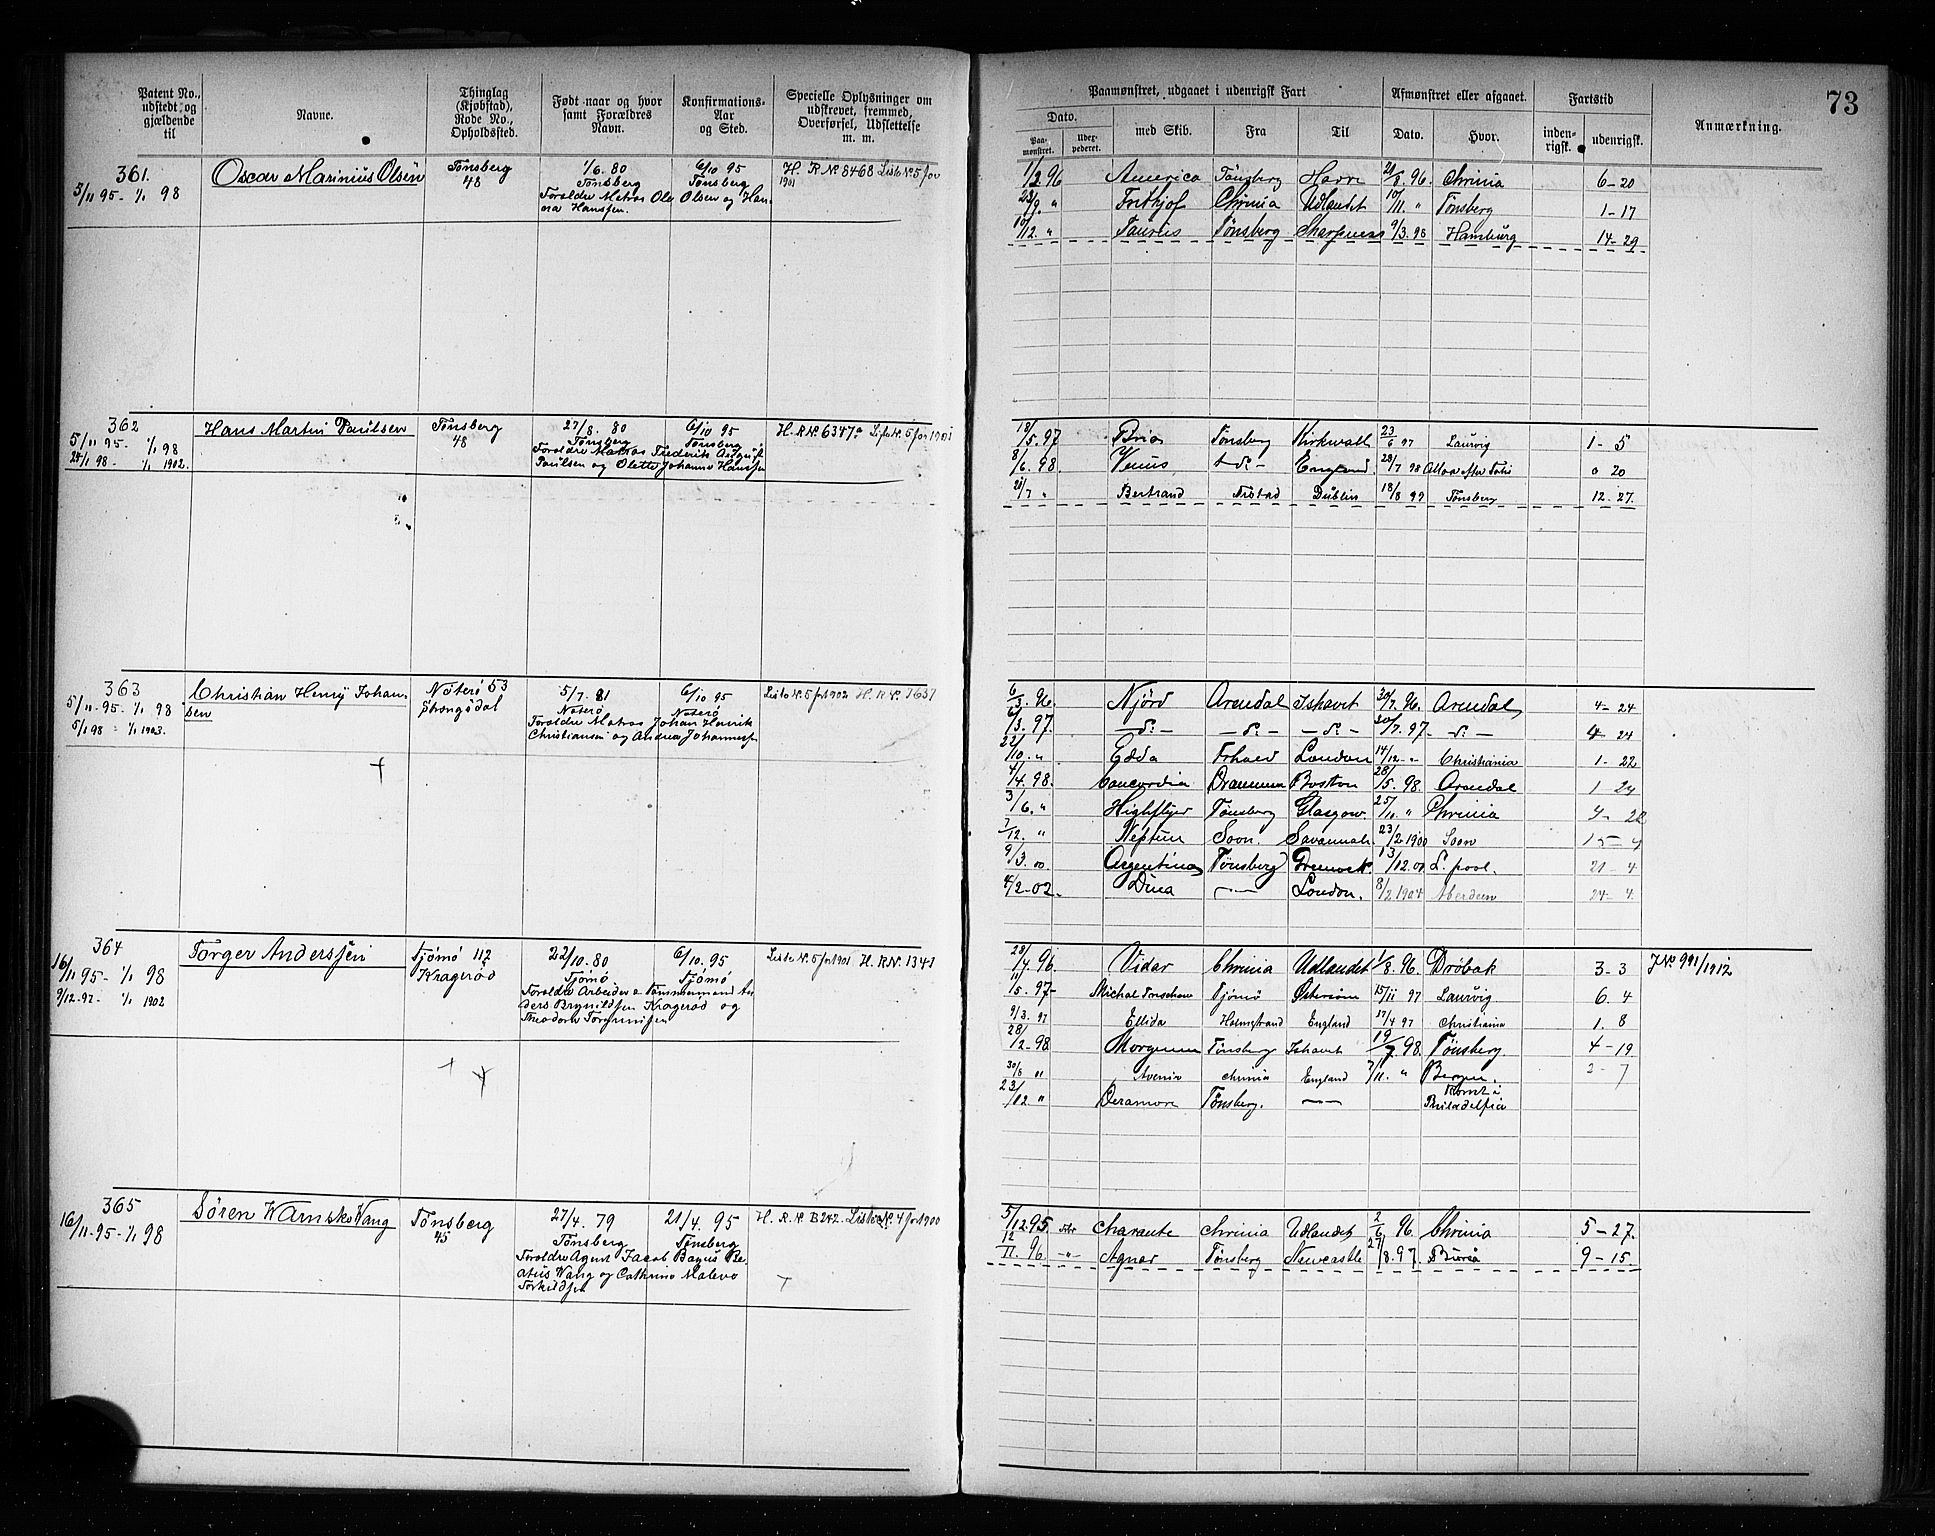 Patent No., udstedt og gjældende til
Navne.
Thinglag (Kjøbstad), Rode No., Opholdssted.
Født naar og hvor samt Forældres Navn.
Konfirmations-Aar og Sted.
Specielle Oplysninger om udskrevet, fremmed, Overførsel, Udslettelse m. m.
Paamønstret, udgaaet i udenrigsk Fart
Dato.
Paa-mønstret.
Uder-pederet.
med Skib.
Fra
Til
Afmønstret eller afgaaet.
Dato.
Hvor.
Fartstid
inden-rigsk.
udenrigsk.
Anmærkning.
73
361.
5/11 95 - 1/1 98
Oscar Marinius Olsen
Tønsberg
48
1/6. 80
Tønsberg
6/10 95
Tønsberg
Foreldre Matros Ole Olsen og Hanna Hanssen.
H. R No 8468 Liste No 5 for 1901
1/2 96 America Tønsberg Havre 21/8. 96. Chrinia 6-20
23/9. " Frithjof Chrinia Udlandet 10/11. " Tønsberg 1-17
10/12. " Taurus Tønsberg Sharpness 9/3. 98 Hamburg 14-29
362
5/11 95 - 1/1 98
24/1 98 - 1/1 1902.
Hans Martin Paulsen
Tønsberg
48
27/8. 80
Tønsberg
6/10 95
Tønsberg
Foreldre Matros Frederik August
Paulsen og Olette Johanne Hanssen
H. R No 6347a Liste No 5 for 1901
18/5. 97 Brio Tønsberg Kirkwall 23/6 97 Laurvig 1-5
8/6. 98 Venus -d:- England 28/7 98 0 20
28/7 " Bertrand Dublin 18/8 99 Tønsberg 12-27.
363
5/11 95 - 1/1 98
5/1 98 - 1/1 1903.
Christian Henry Johansen
Nøterø 53
5/7. 81
Nøterø
6/10 95
Nøterø
Foreldre Matros Johan Henrik
Christiansen og Andrea Johannessen
Liste No 5 for 1902 H. R No. 7637
6/3. 96. Njörd Arendal Ishavet 30/7. 96. Arendal 4-24
6/3. 97. -d:- -d:- -d:- 30/7. 97. -d:- 4 24
22/10. " Edda London 14/12 " Christiania 1-22
4/4. 98. Concordia Drammen Boston 28/5. 98 Arendal 1 24
3/6. " Highflyer Tønsberg Glasgow 25/10 " Chrinia 4-22
7/12. " Neptun Soon. Savannah 23/2 1900 Soon 15-4
9/3. 00 Argentina Tønsberg 13/12.01 L. pool. 21-4
4/2-02 Dina London. 8/2 1904 Aberdeen 24-4.
364
16/11 95 - 1/1 98
9/12-97 - 1/1 1902
Torger Anderssen
Tjømø 112
Kragerød
22/10. 80
Tjømø
6/10. 95
Tjømø
Foreldre Arbeider & Tømmermand Anders Brynildsen Kragerød og
Theodora Torgersen
Liste No. 5 for 1901 H. R No. 1341
28/7. 96. Vidar Chrinia Udlandet 1/8. 96. Drøbak 3-3 J No 991/1912
11/5. 97 Tjømø Østersøen 15/11 97 Laurvig 6. 4
9/3. 97 Ellida Holmestrand England 17/4 97 Christiania 1. 8
28/2-98 Morgenen Tønsberg Ishavet 19/7. 98. Tønsberg. 4-19
30/8 " Avenir Chrinia England 7/11. " Bergen. 2-7
23/12 " Deramore Tønsberg. Rømt i
Philadelfia
365
16/11-95-1/1 98
Søren Wamsko Wang
Tønsberg
45
27/4. 79
Tønsberg
21/4. 95
Tønsberg
Foreldre Agent Jacob Bagus Beatus Wang og Cathrine Maleva
Torkildsen
H. R. No. B 242. Liste No. 4 for 1900
5/12.95. Charante Chrinia Udlandet 2/6. 96. Chrinia 5-27.
12/11. 96 -"- Agnar Tønsberg Newcastle 27/8. 97. 9-15.